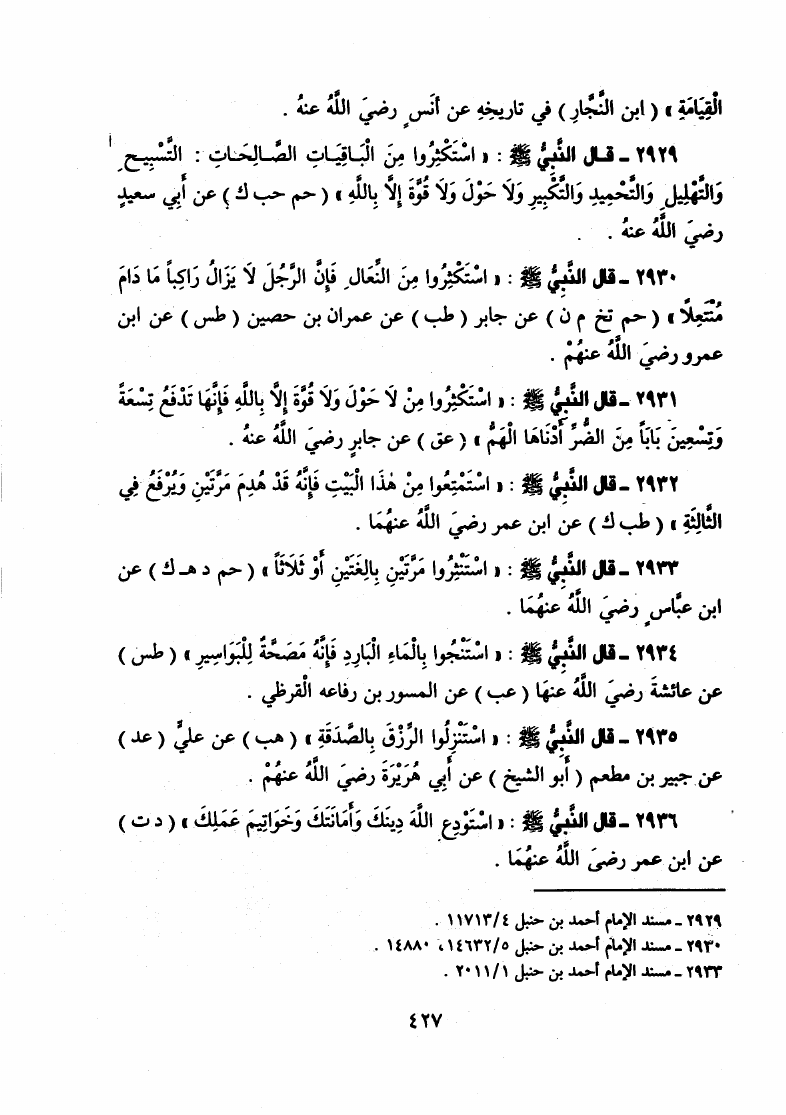 الْقِيَامَةِ » ( ابن النَّجَّارِ ) في تاريخِهِ عن أَنَسٍ رضيَ اللَّهُ عنهُ .
٢٩٢٩ ـ قـال النَّبِيُّ ﷺ : « اسْتَكْثِرُوا مِنَ الْبَـاقِيَـاتِ الصَّـالِحَـاتِ : التَّسْبِيـحِ
وَالتَّهْلِيلِ وَالتَّحْمِيدِ وَالتَّكْبِيرِ وَلَا حَوْلَ وَلَا قُوَّةَ إِلَّا بِاللَّهِ » ( حم حب ك ) عن أَبي سعيدٍ
رضيَ اللَّهُ عنهُ .
٢٩٣٠ ـ قال النَّبِيُّ ﷺ : « اسْتَكْثِرُوا مِنَ النِّعَالِ فَإِنَّ الرَّجُلَ لَا يَزَالُ رَاكِباً مَا دَامَ
مُنْتَعِلًا » ( حم تخ م ن ) عن جابر ( طب ) عن عمران بن حصين ( طس ) عن ابن
عمرو رضيَ اللَّهُ عنهُمْ .
٢٩٣١ ـ قال النَّبِيُّ ﷺ : « اسْتَكْثِرُوا مِنْ لَا حَوْلَ وَلَا قُوَّةَ إِلَّا بِاللَّهِ فَإِنَّهَا تَدْفَعُ تِسْعَةً
وَتِسْعِينَ بَاباً مِنَ الضُّرِّ أَدْنَاهَا الْهَمُّ » ( عق ) عن جابرٍ رضيَ اللَّهُ عنهُ .
٢٩٣٢ ـ قال النَّبِيُّ ﷺ : « اسْتَمْتِعُوا مِنْ هٰذَا الْبَيْتِ فَإِنَّهُ قَدْ هُدِمَ مَرَّتَيْنِ وَيُرْفَعُ فِي
الثَّالِثَةِ » ( طب ك ) عن ابن عمر رضيَ اللَّهُ عنهُمَا .
٢٩٣٣ ـ قال النَّبِيُّ ﷺ : « اسْتَنْثِرُوا مَرَّتَيْنِ بِالِغَتَيْنِ أَوْ ثَلَاثَاً » ( حم د هـ ك ) عن
ابن عبَّاسٍ رضيَ اللَّهُ عنهُمَا .
٢٩٣٤ ـ قال النَّبِيُّ ﷺ : « اسْتَنْجُوا بِالْمَاءِ الْبَارِدِ فَإِنَّهُ مَصَحَّةٌ لِلْبَوَاسِيرِ » ( طس )
عن عائشةَ رضيَ اللَّهُ عنهَا ( عب ) عن المسور بن رفاعه الْقرظي .
٢٩٣٥ ـ قال النَّبِيُّ ﷺ : « اسْتَنْزِلُوا الرِّزْقَ بِالصَّدَقَةِ » ( هب ) عن عليٍّ ( عد )
عن جبير بن مطعم ( أَبو الشيخ ) عن أَبِي هُرَيْرَةَ رضيَ اللَّهُ عنهُمْ .
٢٩٣٦ ـ قال النَّبِيُّ ﷺ : « اسْتَوْدِعِ اللَّهَ دِينَكَ وَأَمَانَتَكَ وَخَوَاتِيمَ عَمَلِكَ » ( د ت )
عن ابن عمر رضيَ اللَّهُ عنهُمَا .
٢٩٢٩ ـ مسند الإمام أحمد بن حنبل ٤/١١٧١٣ .
٢٩٣٠ ـ مسند الإمام أحمد بن حنبل ٥/١٤٦٣٢ ، ١٤٨٨٠ .
٢٩٣٣ ـ مسند الإمام أحمد بن حنبل ١/٢٠١١ .
٤٢٧